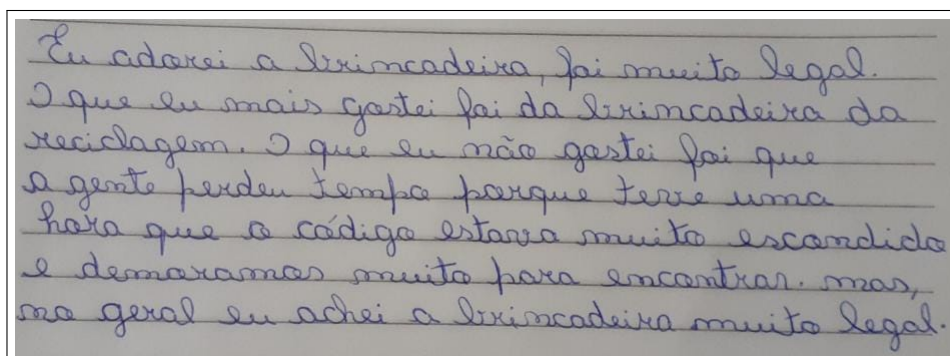 Eu adorei a brincadeira, foi muito legal.
O que eu mais gostei foi da brincadeira da
reciclagem. O que eu não gostei foi que
a gente perdeu tempo porque teve uma
hora que o código estava muito escondido
e demoramos muito para encontrar. mas,
no geral eu achei a brincadeira muito legal.